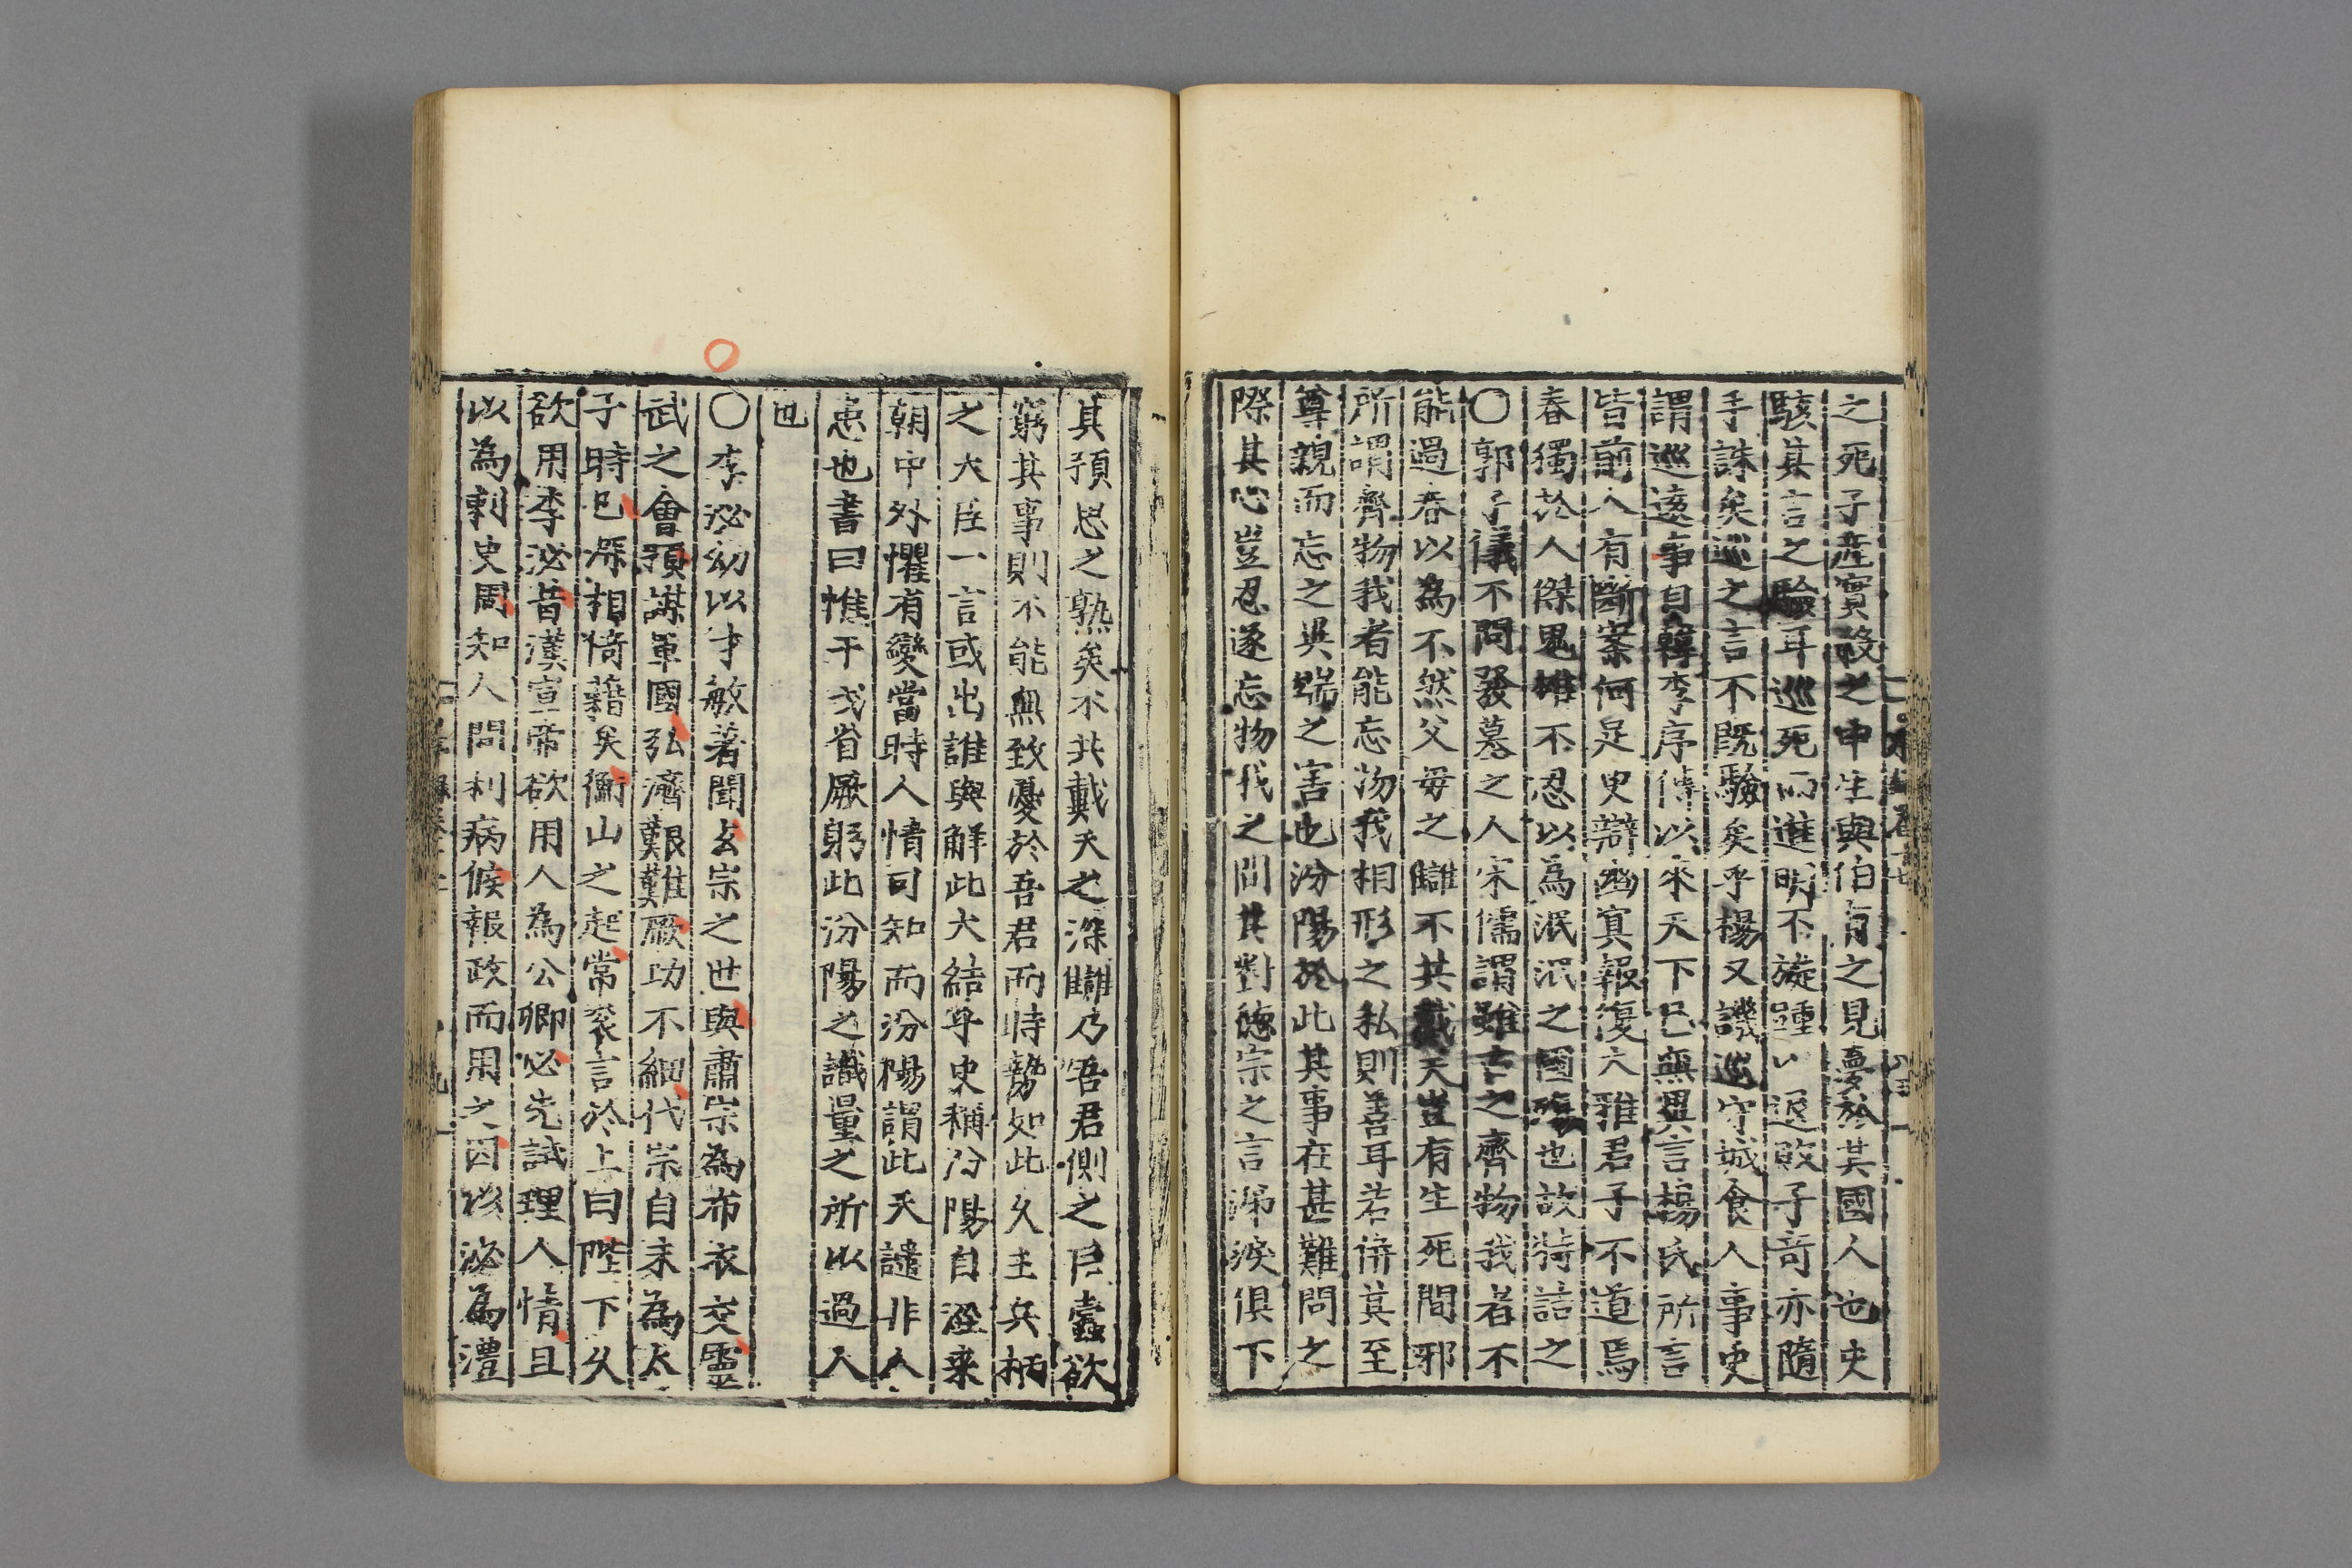 之死子産實殺之申生與伯有之見夢於其國人也史
駭其言之驗耳巡死而進明不旋踵以退敗子竒亦隨
手誅矣巡之言不既驗矣乎楊又譏巡守城食人事史
謂巡遠事自韓李序傳以來天下已無異言楊氏所言
皆前人有斷案何足更辯幽冥報復大雅君子不道焉
春獨於人傑鬼雄不忍以爲泯泯之國殤也故特詰之
〇郭子儀不問發墓之人宋儒謂雖古之齊物我者不
能過春以為不然父母之讎不共戴天豈有生死間邪
所謂齊物我者能忘汤我相形之私則善耳若倂其至
尊親而忘之異端之害也汾陽於此其事在甚難問之
際其心豈忍遂忘物我之間其對德宗之言涕淚俱下
其預思之熟矣不共戴天之深讎乃吾君側之臣蠧欲
窮其事則不能無致憂於吾君而時勢如此久主兵柄
之大臣一言或出誰與解此大結乎史稱汾陽自涇来
朝中外懼有變當時人情可知而汾陽謂此天譴非人
患也書曰惟干戈省厥躬此汾陽之識量之所以過人
也
〇李泌幼以才敏著聞玄宗之世與肅宗為布衣交靈
武之會預謀軍國弘濟艱難厥功不細代宗自未為太
子時已深相倚藉矣衡山之起常衮言於上曰陛下久
欲用李泌昔漢宣帝欲用人為公卿必先試理人情且
以為刺史周知人間利病候報政而用之因以泌爲澧